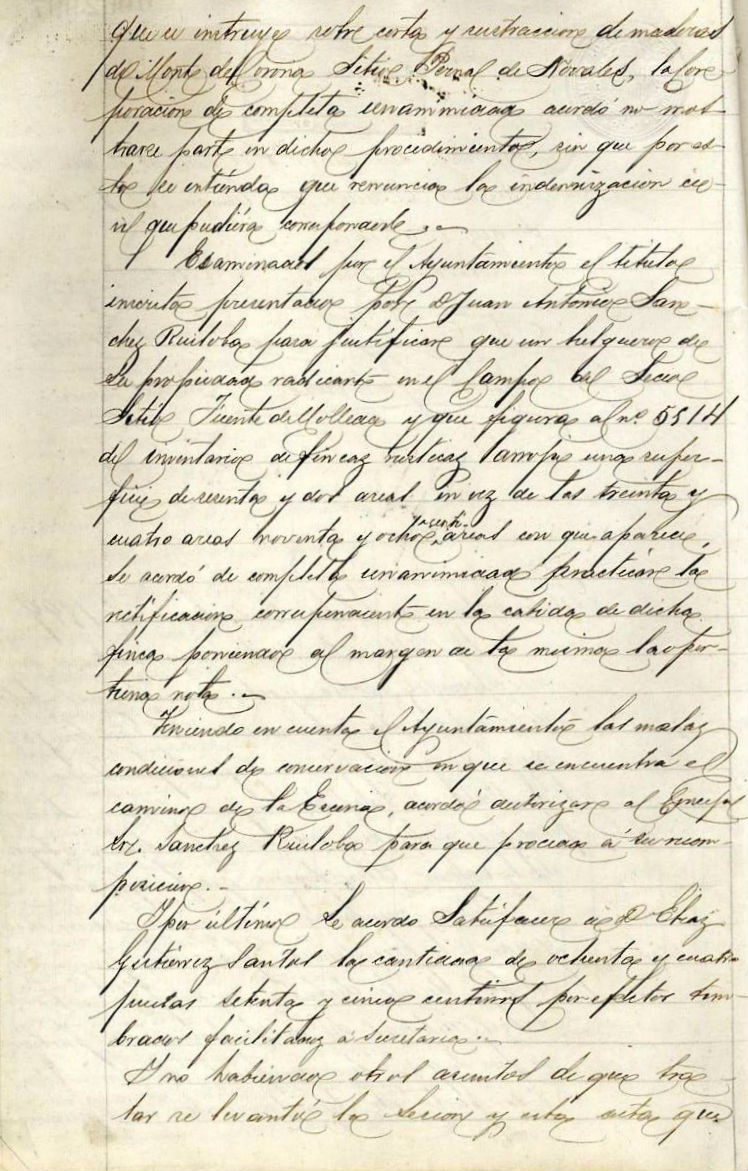 que se instruye sobre corta y sustraccion de maderas
del Monte de Corona Sitio Pernal de Novales, la Cor
poracion de completa unanimidad acordó no mos
trarse parte en dicho procedimiento, sin que por es-
to se entienda que renuncia la indemnizacion ci-
vil que pudiera corresponderle.
Examinado por el Ayuntamiento el titulo
inscrito presentado por D Juan Antonio San-
chez Ruiloba para justificar que un helguero de
su propiedad radicante en el Campo del
Sitio Fuente de Molleda y que figura al nº 5514
del inventario de fincas rusticas arroja una super-
ficie de sesenta y dos areas en vez de las treinta y
cuatro areas noventa y ocho centiareas con que aparece,
se acordó de completa unanimidad practicar la
retificacion correspondiente en la cabida de dicha
finca poniendo al margen de la misma la opor-
tuna nota.
Teniendo en cuenta el Ayuntamiento las malas
condiciones de conservacion en que se encuentra el
camino de la acordó autorizar al Concejal
Sr. Sanchez Ruiloba para que proceda á su recom-
posicion.
Y por último se acordo satisfacer a D
Gutiérrez Santos la cantidad de ochenta y cuatro
pesetas setenta y cinco centimos por efectos tim-
brados facilitados á secretaria.
Y no habiendo otros asuntos de que tra-
tar se levantó la sesion y esta acta que